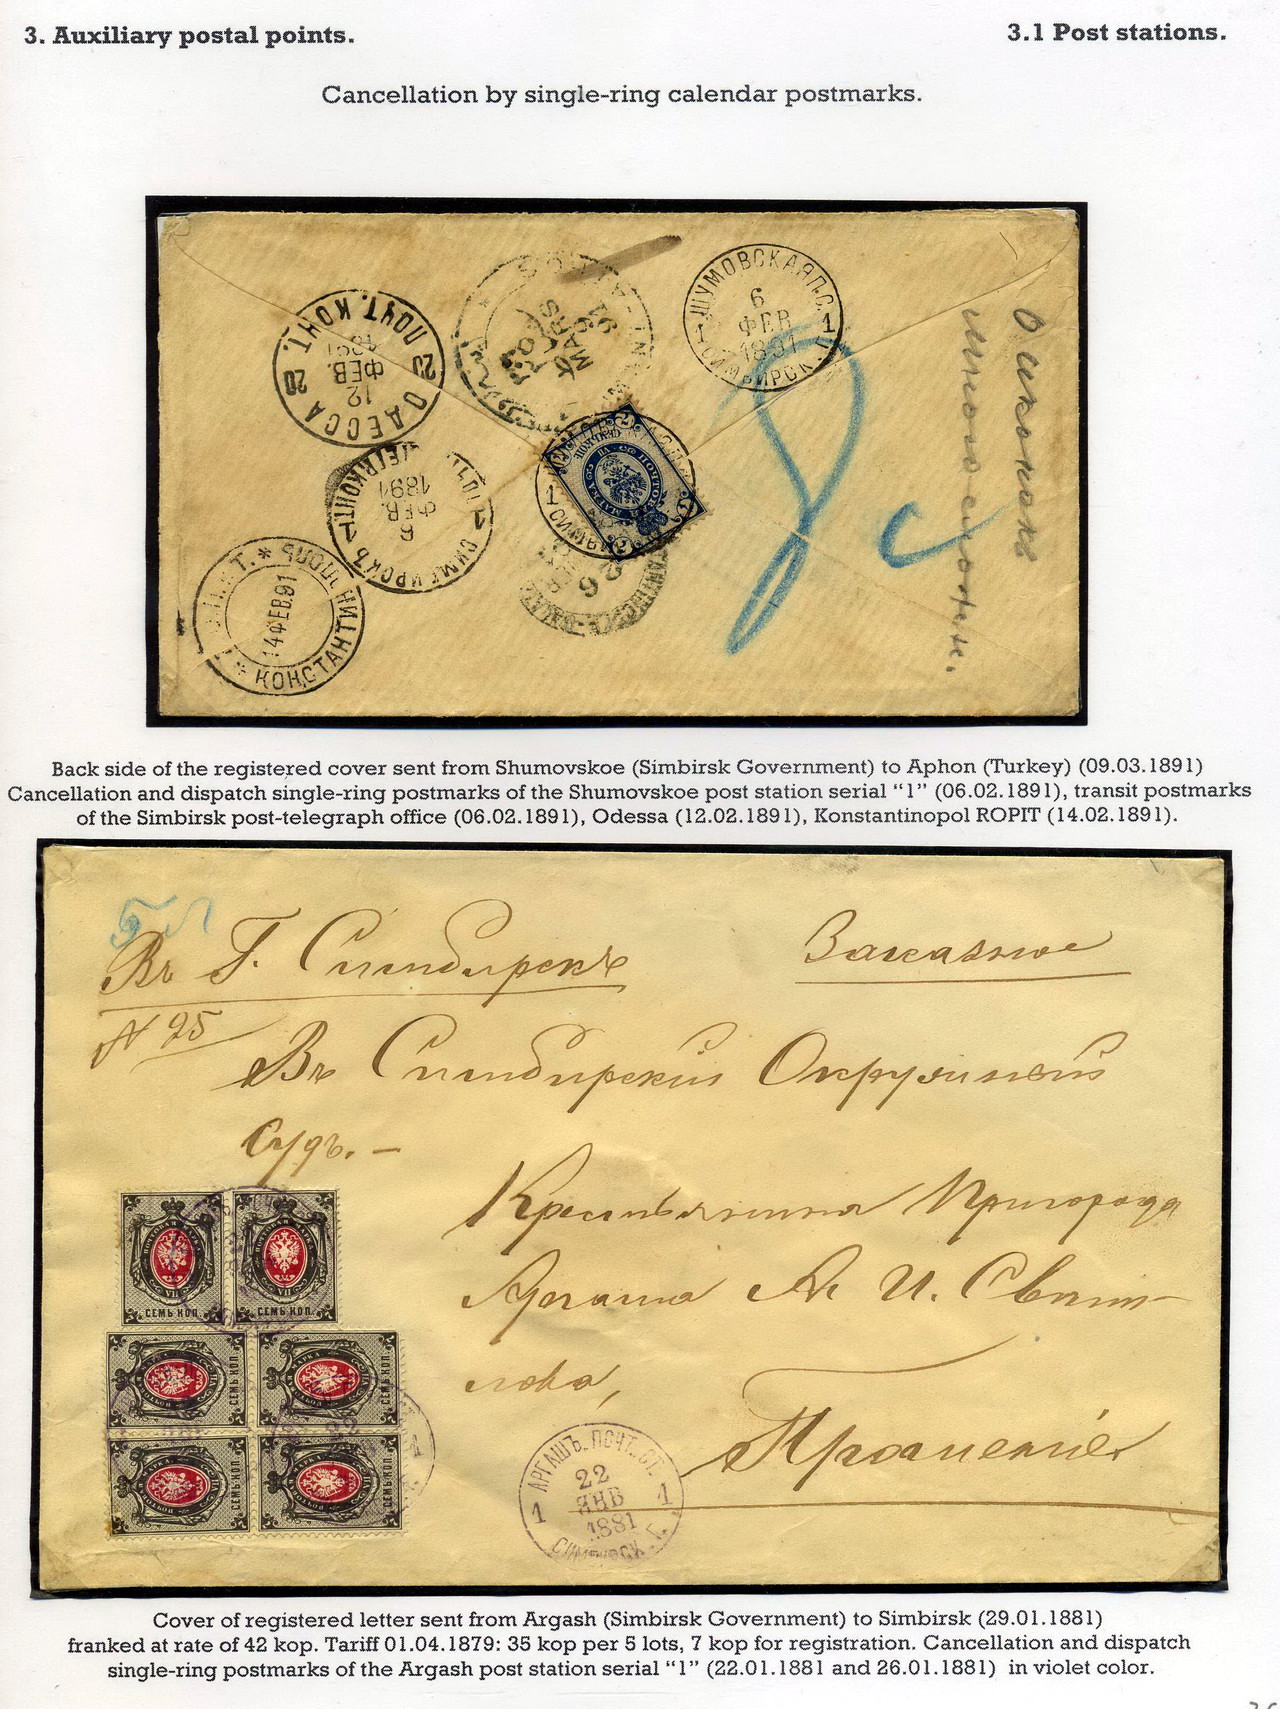 3. Auxiliary postal points.
3.1 Post stations.
Cancellation by single-ring calendar postmarks.
ШУМОВСКАЯ П.С.
6
ФЕВ
1891
1 СИМБИРСК. Г. 1
ОДЕССА
20 ПОЧТ. КОНТ. 20
12
ФЕВ.
1891
СИМБИРСКЪ
6
ФЕВ.
1891
КОНСТАНТИНОПОЛЬ
14 ФЕВ. 91
MARS
91
Back side of the registered cover sent from Shumovskoe (Simbirsk Government) to Aphon (Turkey) (09.03.1891)
Cancellation and dispatch single-ring postmarks of the Shumovskoe post station serial “1” (06.02.1891), transit postmarks
of the Simbirsk post-telegraph office (06.02.1891), Odessa (12.02.1891), Konstantinopol ROPIT (14.02.1891).
Въ Г. Симбирскъ
Заказное
№ 25
Въ Симбирскій Окружный
Судъ. –
Крестьянина Пригорода
Аргаша
И.
Прошеніе
ПОЧТОВАЯ МАРКА
СЕМЬ КОП.
СЕМЬ КОП.
СЕМЬ КОП.
СЕМЬ КОП.
СЕМЬ КОП.
СЕМЬ КОП.
АРГАШЪ. ПОЧТ. СТ.
22
ЯНВ
1881
1 СИМБИРСК. Г. 1
Cover of registered letter sent from Argash (Simbirsk Government) to Simbirsk (29.01.1881)
franked at rate of 42 kop. Tariff 01.04.1879: 35 kop per 5 lots, 7 kop for registration. Cancellation and dispatch
single-ring postmarks of the Argash post station serial “1” (22.01.1881 and 26.01.1881) in violet color.